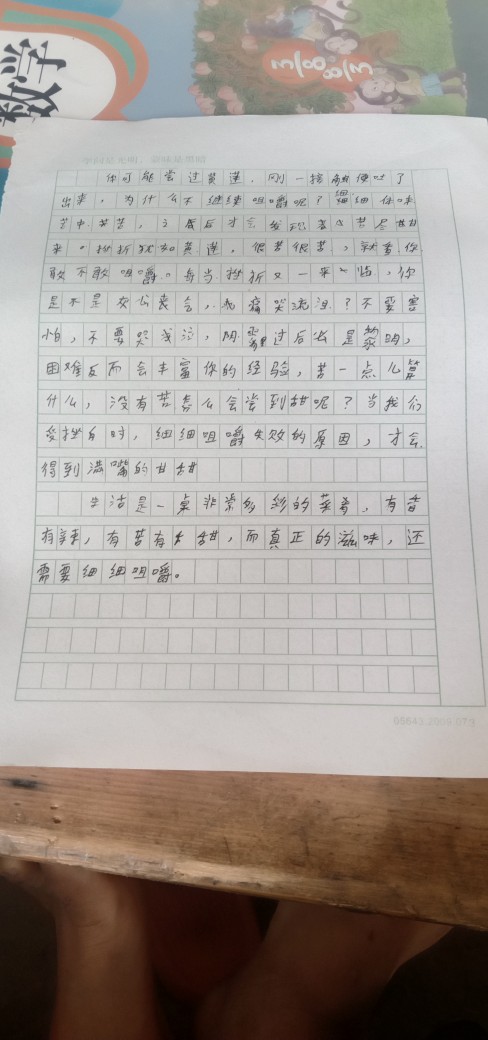 数学
你可能尝过黄莲，刚一接触便吐了
出来，为什么不继续咀嚼呢？细细体味
苦中苦，最后才会发现苦尽甘
来。挫折就如黄莲，很苦很苦，就看你
敢不敢咀嚼。每当挫折又一来临，你
是不是灰心丧气，痛哭流泪？不要害
怕，不要哭或泣，阴霾过后总是黎明，
困难反而会丰富你的经验，苦一点儿算
什么，没有苦怎么会尝到甜呢？当我们
受挫折时，细细咀嚼失败的原因，才会
得到满嘴的甘甜
生活是一桌非常多彩的菜肴，有香
有辣，有苦有甜，而真正的滋味，还
需要细细咀嚼。
05643.2009.07